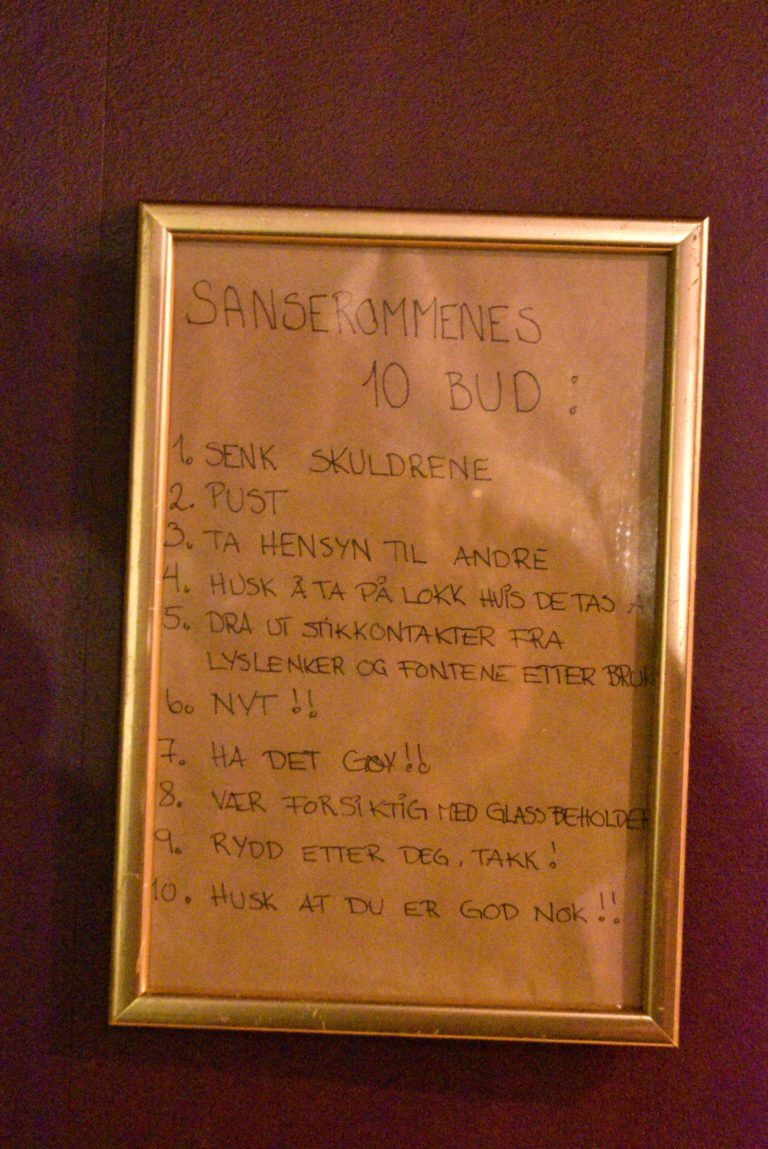 SANSEROMMENES
10 BUD :
1. SENK SKULDRENE
2. PUST
3. TA HENSYN TIL ANDRE
4. HUSK Å TA PÅ LOKK HVIS DE TAS A
5. DRA UT STIKKONTAKTER FRA
LYSLENKER OG FONTENE ETTER BRUK
6. NYT !!
7. HA DET GØY!!
8. VÆR FORSIKTIG MED GLASSBEHOLDER
9. RYDD ETTER DEG, TAKK!
10. HUSK AT DU ER GOD NOK!!